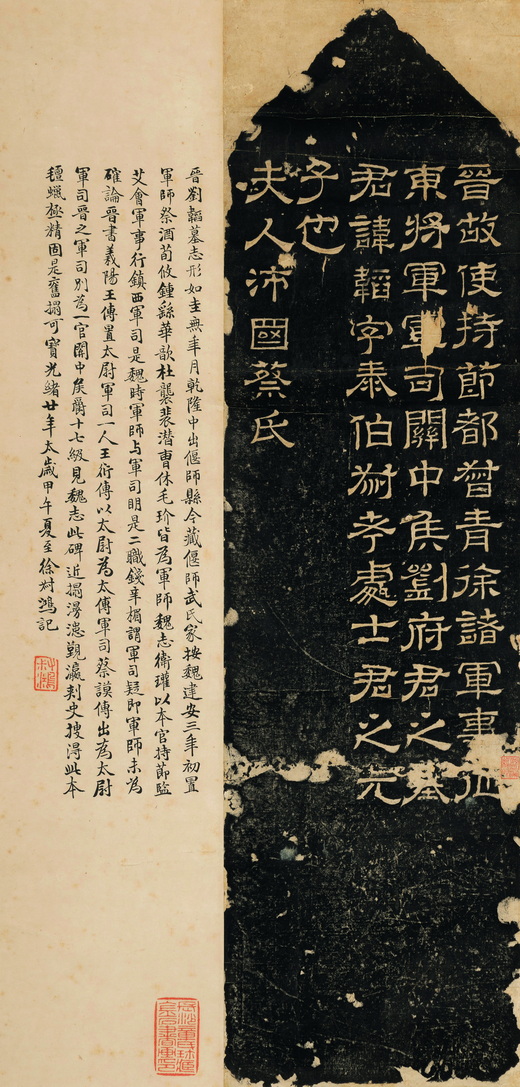 晉故使持節都督青徐諸軍事征
東將軍軍司關中侯劉府君之墓
君諱韜字泰伯林考處士君之元
子也
夫人沛國蔡氏
晉劉韜墓志形如圭無年月乾隆中出偃師縣今藏偃師武氏家按魏建安三年初置
軍師祭酒荀攸鍾繇華歆杜襲裴潛曹休毛玠皆為軍師魏志衛瓘以本官持節監
艾會軍事行鎮西軍司是魏時軍師与軍司明是二職錢辛楣謂軍司疑即軍師未為
確論晉書義陽王傳置太尉軍司一人王衍傳以太尉為太傅軍司蔡謨傳出為太尉
軍司晉之軍司別為一官關中侯爵十七級見魏志此碑近搨漫漶觀瀛刺史搜得此本
氊蠟極精固是舊搨可寶光緒廿年太歲甲午夏至徐樹鴻記